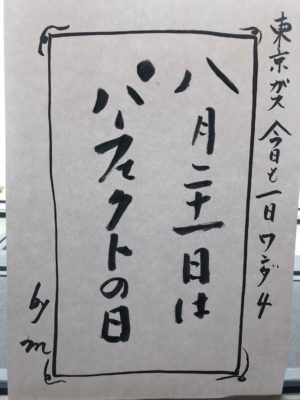 東京ガス 今日も一日ワンダ4
八月二十一日は
パーフェクトの日
by m